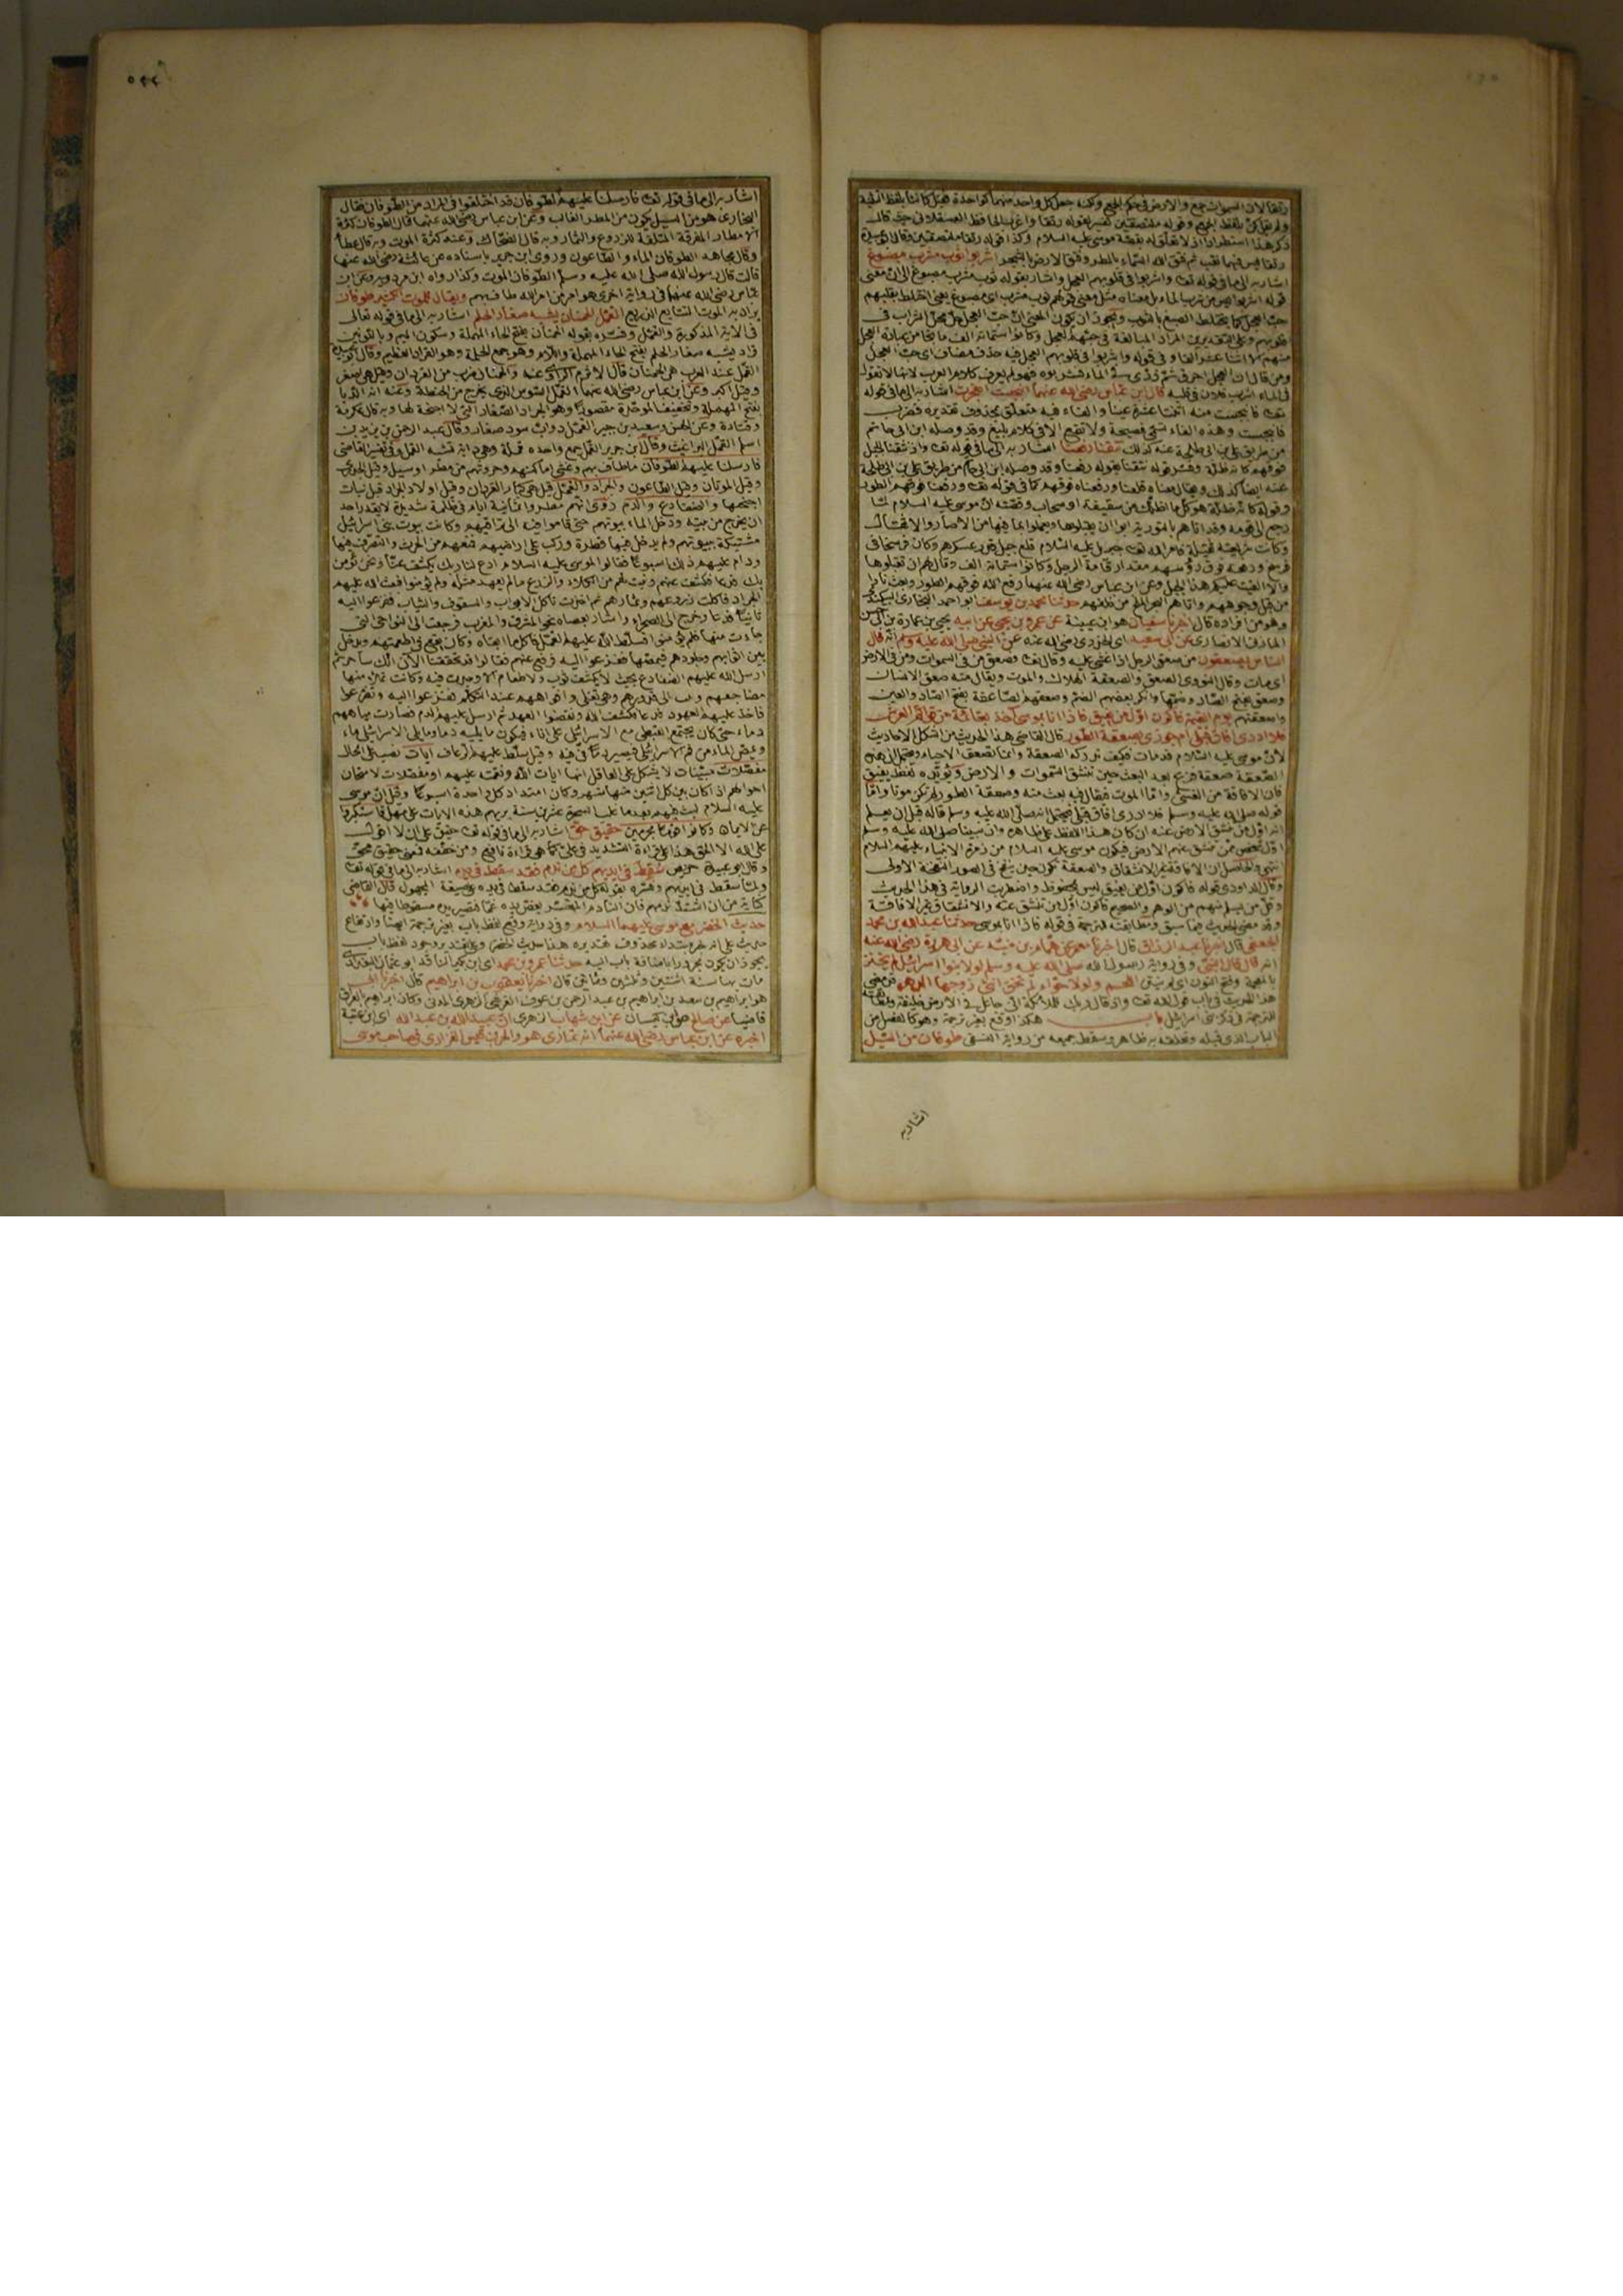 رتقا لان السموات جمع والارض في حكم الجمع وكنه جعل كل واحد منهما كواحدة فقيل كانتا بلفظ التثنية
ولم يقل كن بلفظ الجمع وقوله ملتصقتين تفسير لقوله رتقا واغرب الحافظ العسقلاني حيث قال
ذكر هذا استطرادا اذ لا تعلق له بقصة موسى عليه السلام وكذا قوله رتقا ملتصقتين وقال
رتقا ليس فيهما ثقب ثم فتق الله السماء بالمطر وفتق الارض بالشجر اشربوا ثوب مشرب مصبوغ
اشار به الى ما في قوله تعالى واشربوا في قلوبهم العجل واشار بقوله ثوب مشرب مصبوغ الى ان معنى
قوله اشربوا ليس من شرب الماء بل معناه مثل معنى قولهم ثوب مشرب اي مصبوغ يعني اختلط بقلبهم
حب العجل كما يختلط الصبغ بالثوب ويجوز ان يكون المعنى ان حب العجل حل محل الشراب في
قلوبهم وعلى التقديرين المراد المبالغة في حبهم العجل وكانوا ستمائة الف ما نجا من عبادة العجل
منهم الا اثنا عشر الفا و في قوله واشربوا في قلوبهم العجل فيه حذف مضاف اي حب العجل
ومن قال ان العجل احرق ثم ذرى في الماء فشربوه فهو لم يعرف كلام العرب لانها لا تقول
في الماء اشرب فلان في قلبه قال ابن عباس رضى الله عنهما انبجست انفجرت اشار به الى ما في قوله
تعالى فانبجست منه اثنتا عشرة عينا والفاء فيه متعلق بمحذوف تقديره فضرب
فانبجست وهذه الفاء تسمى فصيحة ولا تقع الا في كلام بليغ وقد وصله ابن ابى حاتم
من طريق على بن ابى طلحة عنه كذلك نتقنا رفعنا اشار به الى ما في قوله تعالى واذ نتقنا الجبل
فوقهم كانه ظلة وفسر قوله نتقنا بقوله رفعنا وقد وصله ابن ابى حاتم من طريق على بن ابى طلحة
عنه ايضا كذلك ويقال معناه قلعنا ورفعناه فوقهم كما في قوله تعالى ورفعنا فوقهم الطور
وقوله كانه ظلة هو كل ما اظلك من سقيفة او سحاب وقصته ان موسى عليه السلام لما
رجع الى قومه وقد اتاهم بالتورية ابوا ان يقبلوها ويعملوا بما فيها من الاصار والاثقال
وكانت شريعته ثقيلة فامر الله تعالى جبريل عليه السلام قلع جبل قدر عسكرهم وكان فرسخا في
فرسخ ورفعه فوق رؤسهم مقدار قامة الرجل وكانوا ستمائة الف وقال لهم ان تقبلوها
والا القيت عليكم هذا الجبل وعن ابن عباس رضى الله عنهما رفع الله فوقهم الطور وبعث نارا
من قبل وجوههم واتاهم البحر الملح من خلفهم حدثنا محمد بن يوسف ابو احمد البخارى البيكندى
وهو من افراده قال اخبرنا سفيان هو ابن عيينة عن عمرو بن يحيى عن ابيه يحيى بن عمارة بن ابى حسن
المازنى الانصارى عن ابى سعيد اي الخدرى رضى الله عنه عن النبي صلى الله عليه وسلم انه قال
الناس يصعقون من صعق الرجل اذا غشى عليه وقال تعالى وصعق من في السموات ومن في الارض
اي مات وقال النووى الصعق والصعقة الهلاك والموت ويقال منه صعق الانسان
وصعق بفتح الصاد وضمها وانكر بعضهم الضم وصعقهم الصاعقة بفتح الصاد والعين
واصعقتهم يوم القيمة فاكون اول من يفيق فاذا انا بموسى آخذ بقائمة من قوائم العرش
فلا ادرى افاق قبلى ام جوزى بصعقة الطور قال القاضى هذا الحديث من اشكل الاحاديث
لان موسى عليه السلام قد مات فكيف تدركه الصعقة وانما تصعق الاحياء ويحتمل ان هذه
الصعقة صعقة فزع بعد البعث حين تنشق السموات والارض ويؤيده لفظ يفيق
فان الافاقة من الغشى واما الموت فيقال فيه بعث منه وصعقة الطور لم تكن موتا واما
قوله صلى الله عليه وسلم فلا ادرى افاق قبلى فيحتمل انه صلى الله عليه وسلم قاله قبل ان يعلم
انه اول من تنشق الارض عنه ان كان هذا اللفظ على ظاهره وان نبينا صلى الله عليه وسلم
اول شخص ممن تنشق عنهم الارض فيكون موسى عليه السلام من زمرة الانبياء عليهم السلام
انتهى والحاصل ان الافاقة غير الانشقاق والصعقة تكون حين ينفخ في الصور النفخة الاولى
وقال الداودى قوله فاكون اول من يفيق ليس بمحفوظ واضطربت الرواية في هذا الحديث
وقل من يسلم منهم من الوهم والصحيم فاكون اول من تنشق عنه والانشقاق غير الافاقة
وقد مضى الحديث فيما سبق ومطابقته للترجمة في قوله فاذا انا بموسى حدثنا عبد الله بن محمد
الجعفى قال اخبرنا عبد الرزاق قال اخبرنا معمر عن همام بن منبه عن ابى هريرة رضى الله عنه
انه قال قال النبي وفي رواية رسول الله صلى الله عليه وسلم لولا بنوا اسرائيل لم يخنز
بالمعجمة وفتح النون اي لم ينتن اللحم ولولا حواء لم تخن انثى زوجها الدهر قد مضى
هذا الحديث في باب قول الله تعالى واذ قال ربك للملائكة انى جاعل في الارض خليفة ومطابقته
للترجمة في ذكر بنى اسرائيل باب هكذا وقع بغير ترجمة وهو كالفصل من
الباب الذى قبله وتعلقه به ظاهر وسقط جميعه من رواية النسفى طوفان من السيل
اشار به
٥٤٤
اشار به الى ما في قوله تعالى فارسلنا عليهم الطوفان قد اختلفوا في المراد من الطوفان فقال
البخارى هو من السيل يكون من المطر الغالب وعن ابن عباس رضى الله عنهما قال الطوفان كثرة
الامطار المغرقة المتلفة للزروع والثمار وبه قال الضحاك وعنه كثرة الموت وبه قال عطاء
وقال مجاهد الطوفان الماء والطاعون وروى ابن جرير باسناده عن عائشة رضى الله عنها
قالت قال رسول الله صلى الله عليه وسلم الطوفان الموت وكذا رواه ابن مردويه وعن ابن
عباس رضى الله عنهما في رواية اخرى هو امر من امر الله طاف بهم ويقال للموت الكثير طوفان
يراد به الموت المتتابع الذريع القمل الحمنان يشبه صغار الحلم اشار به الى ما في قوله تعالى
في الاية المذكورة والقمل وفسره بقوله الحمنان بفتح الحاء المهملة وسكون الميم وبالنونين
قراد يشبه صغار الحلم بفتح الحاء المهملة واللام وهو جمع الحلمة وهو القراد العظيم وقال ابو عبيدة
القمل عند العرب هي الحمنان قال الاثرم الراوى عنه والحمنان ضرب من القردان وقيل هي اصغر
وقيل اكبر وعن ابن عباس رضى الله عنهما القمل السوس الذى يخرج من الحنطة وعنه انه الدبا
بفتح المهملة وتخفيف الموحدة مقصورا وهو الجراد الصغار التى لا اجنحة لها وبه قال عكرمة
وقتادة وعن الحسن وسعيد بن جبير القمل دواب سود صغار وقال عبد الرحمن بن زيد بن
اسلم القمل البراغيث وقال ابن جرير القمل جمع واحده قملة وهي دابة تشبه القمل وفي تفسير القاضى
فارسلنا عليهم الطوفان ما طاف بهم وغشى اماكنهم وحروثهم من مطر او سيل وقيل الجدرى
وقيل الموتان وقيل الطاعون والجراد والقمل قيل هي كبار القردان وقيل اولاد الجراد قبل نبات
اجنحتها والضفادع والدم روى انهم مطروا ثمانية ايام في ظلمة شديدة لا يقدر احد
ان يخرج من بيته ودخل الماء بيوتهم حتى قاموا فيه الى تراقيهم وكانت بيوت بنى اسرائيل
مشتبكة ببيوتهم ولم يدخل فيها قطرة وركب على اراضيهم فمنعهم من الحرث والتصرف فيها
ودام عليهم ذلك اسبوعا فقالوا لموسى عليه السلام ادع لنا ربك يكشف عنا ونحن نؤمن
بك فدعا فكشف عنهم ونبت لهم من الكلاء والزرع مالم يعهد مثله ولم يؤمنوا فبعث الله عليهم
الجراد فاكلت زروعهم وثمارهم ثم اخذت تاكل الابواب والسقوف والثياب ففزعوا اليه
ثانيا فدعا وخرج الى الصحراء واشار بعصاه نحو المشرق والمغرب فرجعت الى النواحى التى
جاءت منها فلم يؤمنوا فسلط الله عليهم القمل فاكل ما ابقاه وكان يقع في اطعمتهم ويدخل
بين اثوابهم وجلودهم فيمصها ففزعوا اليه فرفع عنهم فقالوا قد تحققنا الآن انك ساحر ثم
ارسل الله عليهم الضفادع بحيث لا يكشف ثوب ولا طعام الا وجدت فيه وكانت تمتلئ منها
مضاجعهم وتثب الى قدورهم وهي تغلى وافواههم عند التكلم ففزعوا اليه وتضرعوا
فاخذ عليهم العهود فدعا فكشف الله ونقضوا العهد ثم ارسل عليهم الدم فصارت مياههم
دماء حتى كان يجتمع القبطى مع الاسرائيلى على اناء فيكون ما يليه دما وما يلى الاسرائيلى ماء
ويمص الماء من فم الاسرائيلى فيصير دما في فيه وقيل سلط عليهم الرعاف ايات نصب على الحال
مفصلات مبينات لا يشكل على العاقل انها ايات الله ونقمته عليهم او مفصلات لامتحان
احوالهم اذ كان بين كل اثنتين منها شهر وكان امتداد كل واحدة اسبوعا وقيل ان موسى
عليه السلام لبث فيهم بعد ما غلب السحرة عشرين سنة يريهم هذه الايات على مهل فاستكبروا
عن الايمان وكانوا قوما مجرمين حقيق حق اشار به الى ما في قوله تعالى حقيق على ان لا اقول
على الله الا الحق هذا على قراءة التشديد في على كما هي قراءة نافع ومن خففه فمعنى حقيق محق
وقال ابو عبيدة حريص سقط في ايديهم كل من ندم فقد سقط في يده اشار به الى ما في قوله تعالى
ولما سقط في ايديهم وفسره بقوله كل من ندم فقد سقط في يده وبصيغة المجهول قال القاضى
كناية من ان اشتد ندمهم فان النادم المتحسر يعض يده غما فتصير يده مسقوطا فيها
حديث الخضر مع موسى عليهما السلام وفي رواية وقع لفظ باب بغير ترجمة ايضا وارتفاع
حديث على انه خبر مبتداء محذوف تقديره هذا حديث الخضر وعلى تقدير وجود لفظ باب
يجوز ان يكون مجرورا باضافة باب اليه حدثنا عمرو بن محمد اي ابن بكير الناقد ابو عثمان البغدادى
مات سنة اثنتين وثلثين ومائتين قال اخبرنا يعقوب بن ابراهيم قال اخبرنا ابى
هو ابراهيم بن سعد بن ابراهيم بن عبد الرحمن بن عوف القرشى الزهرى المدنى وكان ابراهيم بالعراق
قاضيا عن صالح هو ابن كيسان عن ابن شهاب الزهرى ان عبيد الله بن عبد الله اي ابن عتبة
اخبره عن ابن عباس رضى الله عنهما انه تمارى هو والحر بن قيس الفزارى في صاحب موسى